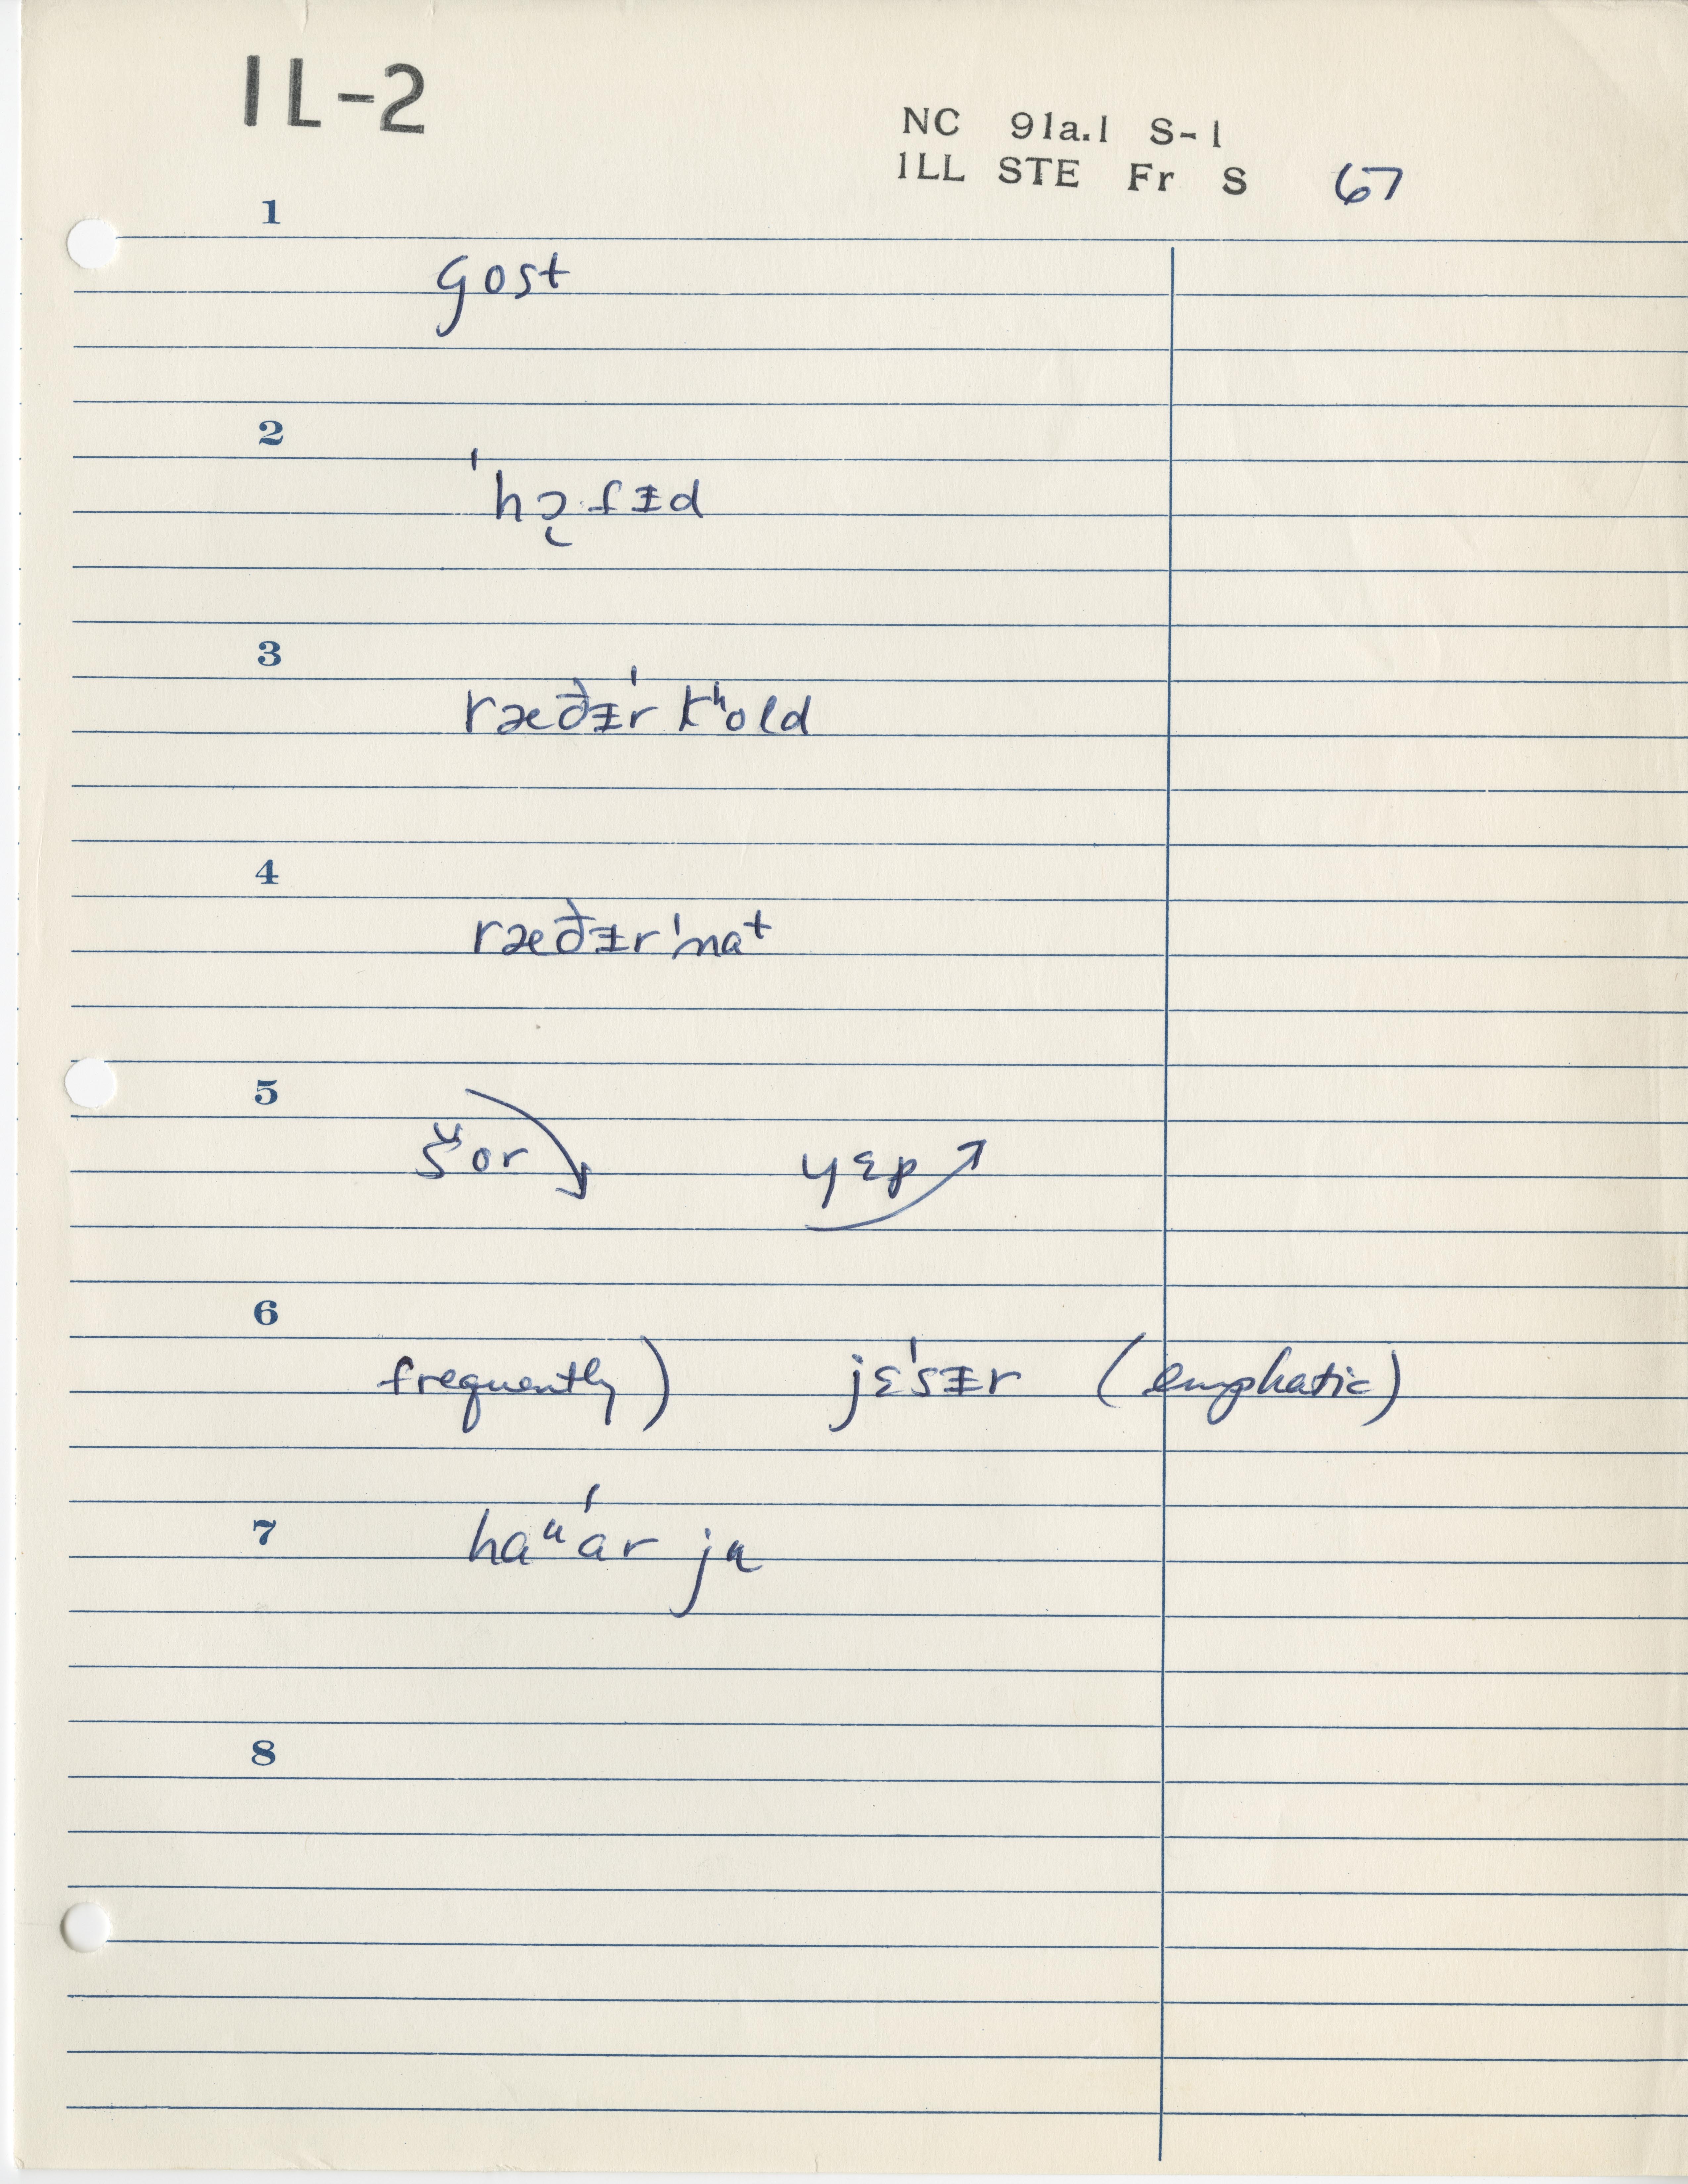 IL-2
NC 91a.1 S-1
ILL STE Fr S 67
1
gost
2
ˈhɔ̜·fɪ̵d
3
ræðɪ̵r ˈkʰold
4
ræðɪ̵r ˈnɑt
5
šᵘor yɛp
6
frequently) jɛˈsɪ̵r (emphatic)
7
haᵘˈar ju
8